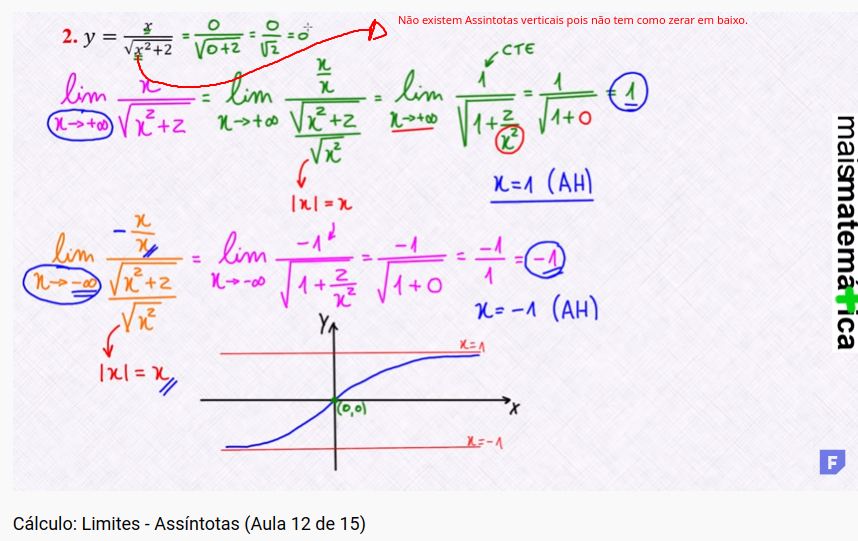 Não existem Assintotas verticais pois não tem como zerar em baixo.
2. y = x/√x²+2 = 0/√0+2 = 0/√2 = 0
lim x→+∞ x/√x²+2 = lim x→+∞ x/x / √x²+2/√x² = lim x→+∞ 1/√1+2/x² = 1/√1+0 = 1
CTE
|x| = x
x=1 (AH)
lim x→-∞ -x/x / √x²+2/√x² = lim x→-∞ -1/√1+2/x² = -1/√1+0 = -1/1 = -1
x=-1 (AH)
|x| = x
Y
x=1
(0,0)
X
x=-1
maismatemática
F
Cálculo: Limites - Assíntotas (Aula 12 de 15)